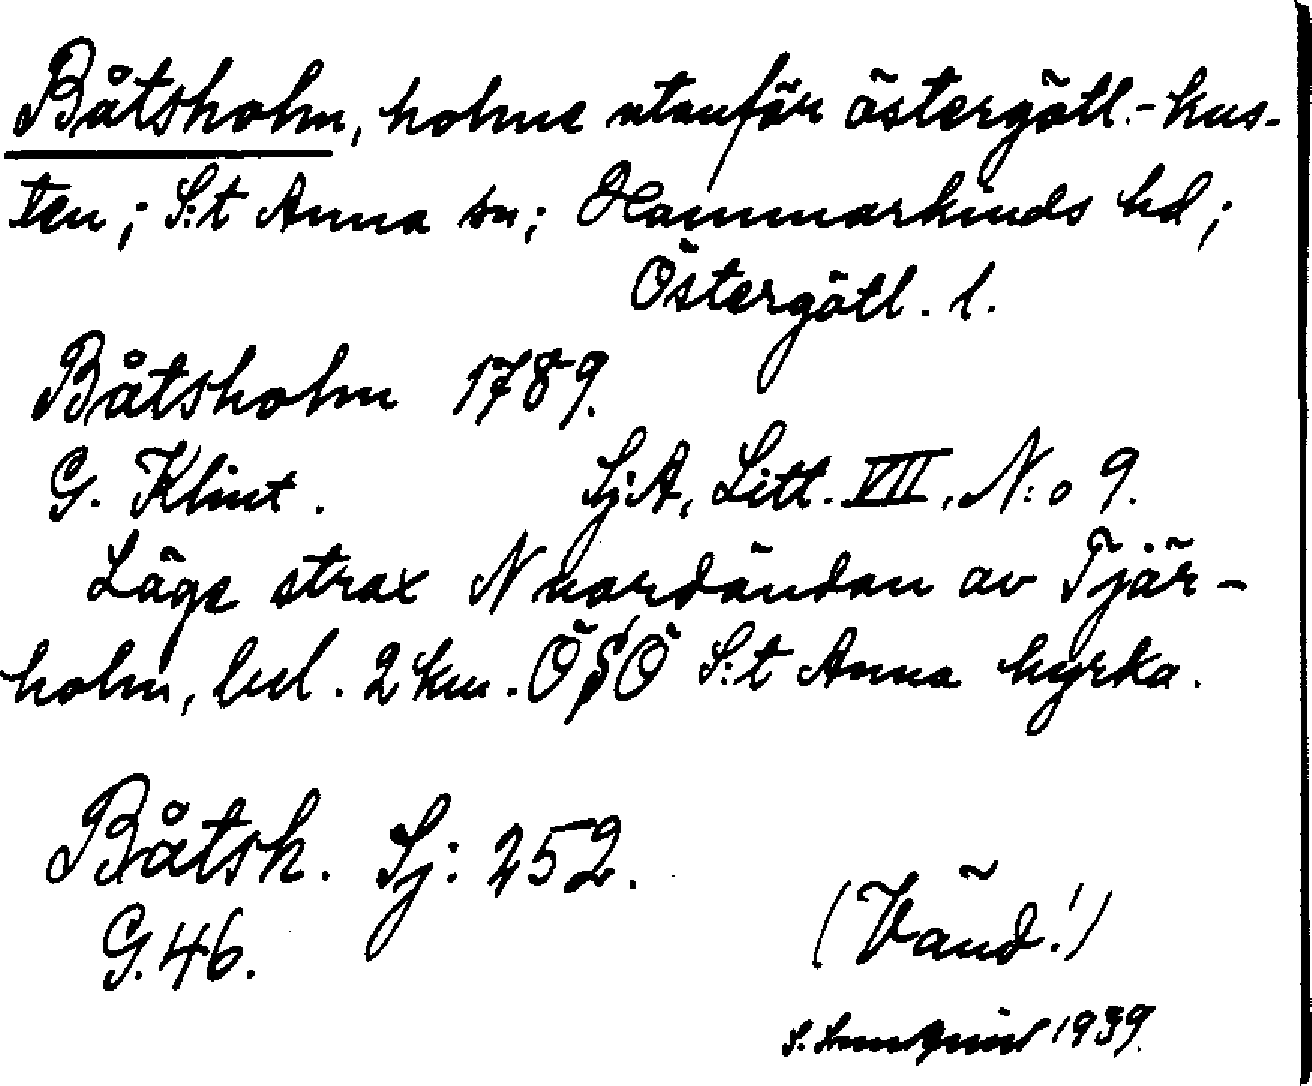 Båtsholm, holme utanför östergötl.-kus-
ten; S:t Anna sn; Hammarkinds hd;
Östergötl. l.
Båtsholm 1789.
G. Klint. SjA, Litt. VII, N:o 9.
Läge strax N nordändan av Tjär-
holm, bel. 2 km. ÖSÖ S:t Anna kyrka.
Båtsh. Sj: 252.
G. 46.
(Vänd!)
S. 1939.